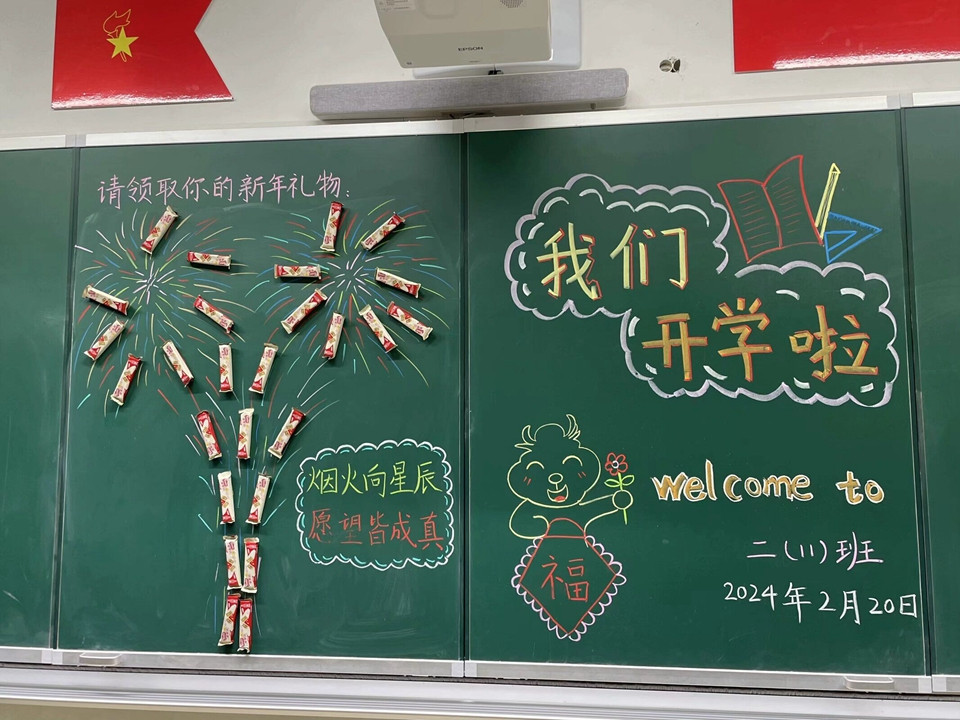 EPSON
请领取你的新年礼物:
烟火向星辰
愿望皆成真
我们
开学啦
welcome to
二(11)班
2024年2月20日
福